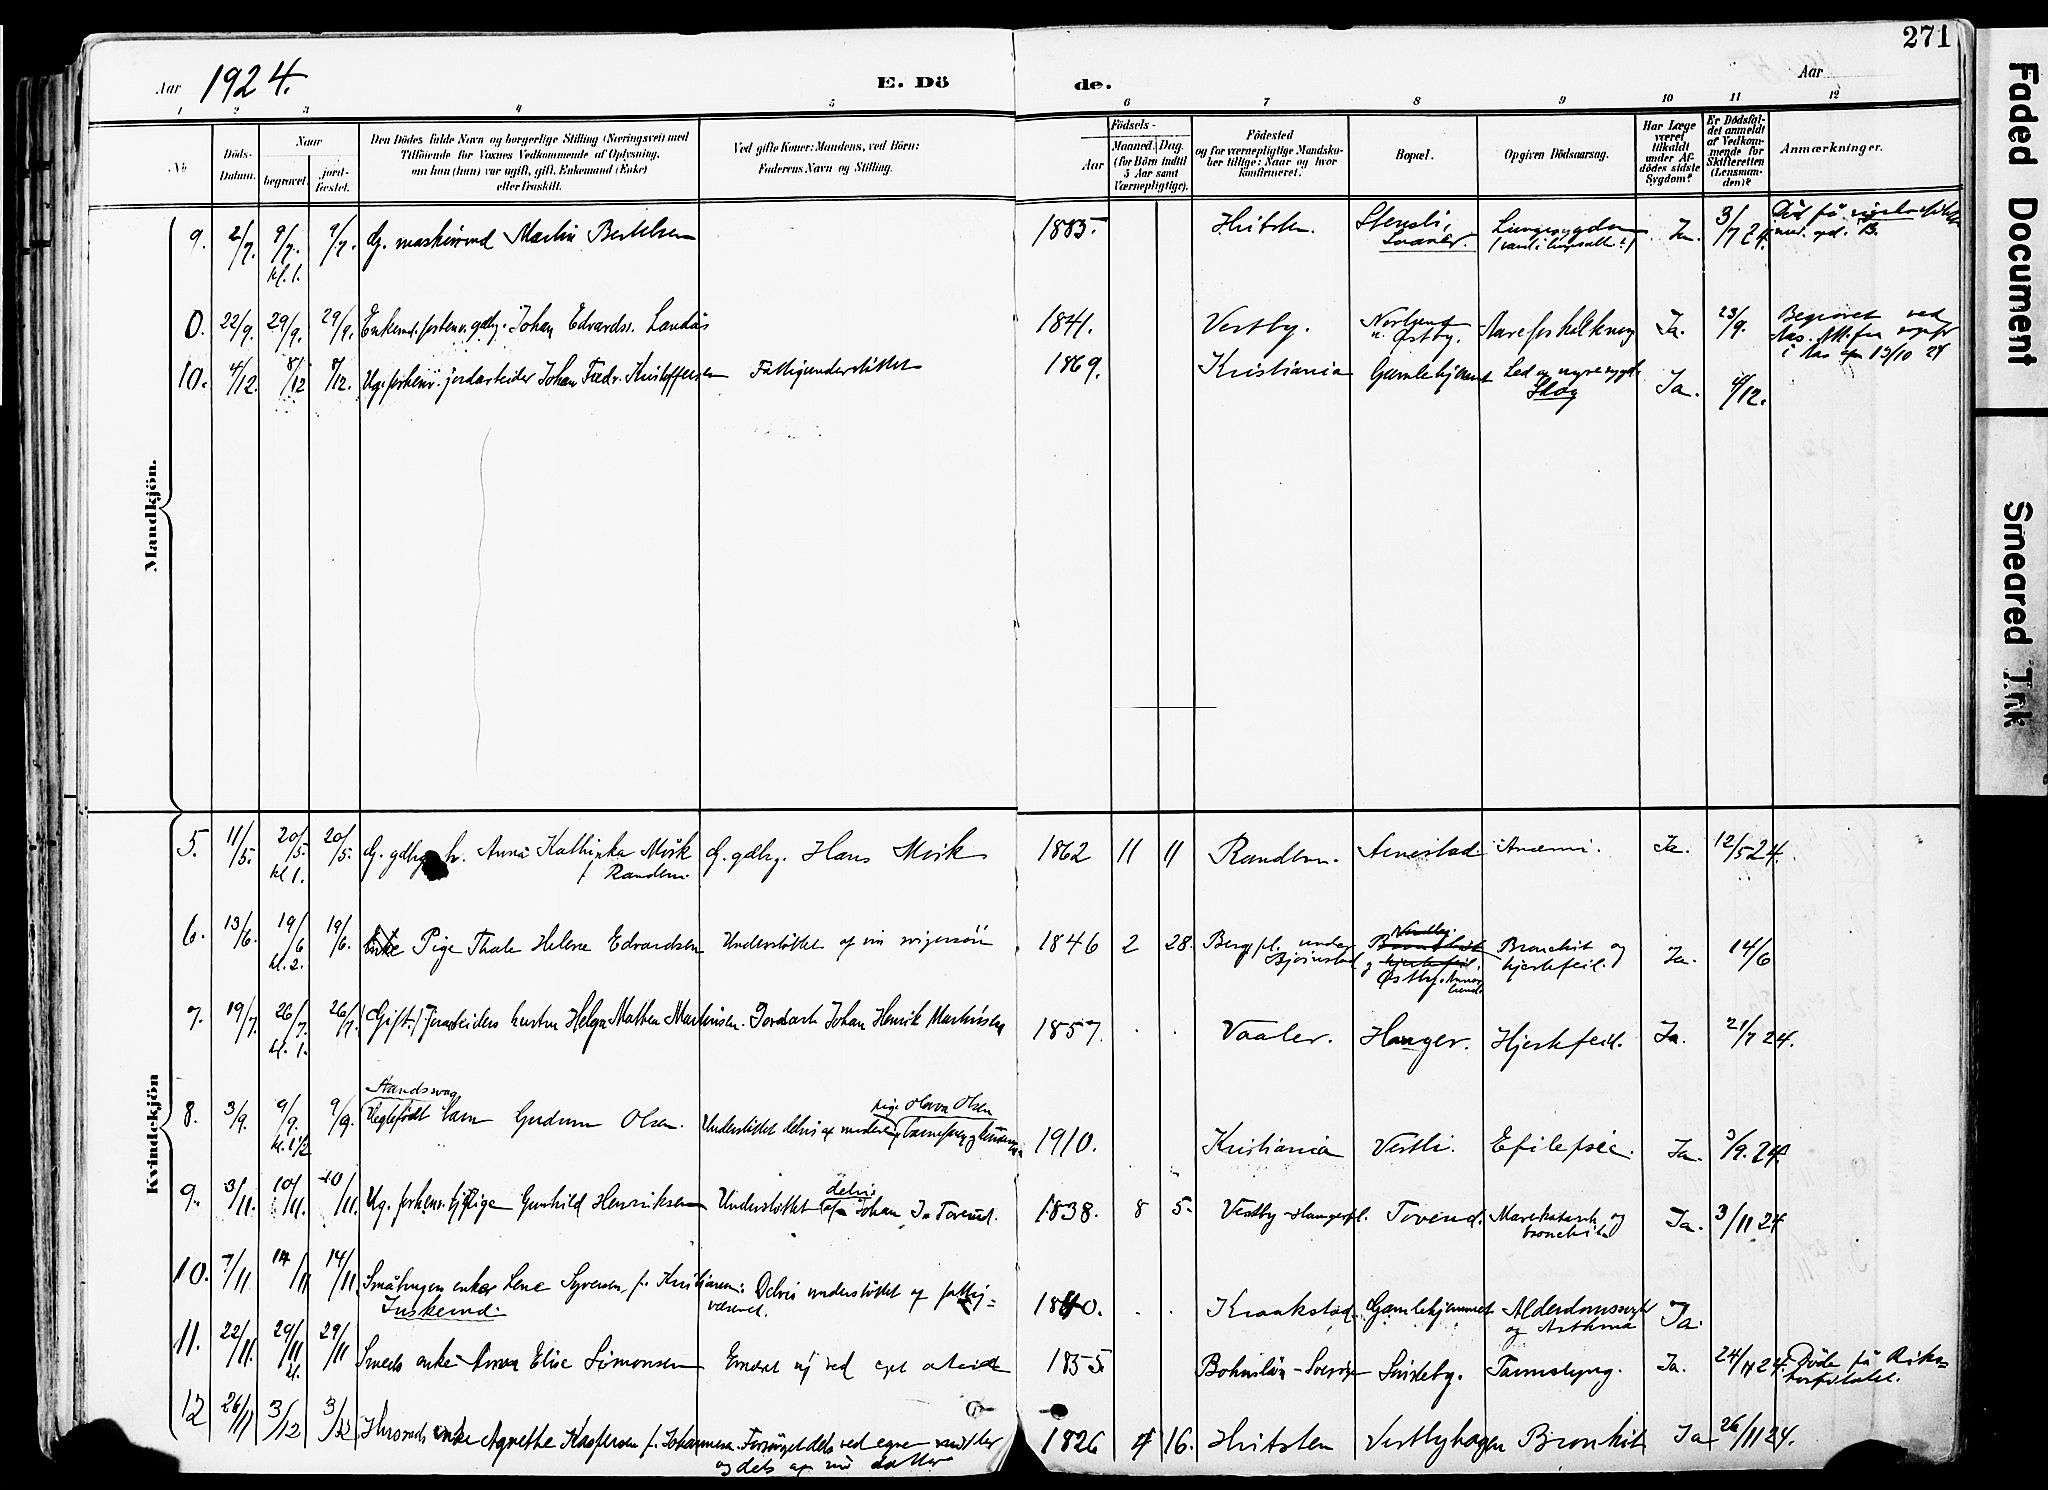 271
Aar 1924.
E. Dö
de.
Aar
1 2 3 4 5 6 7 8 9 10 11 12
No
Döds-
Datum.
Naar
begravet.
jord-
fæstet.
Den Dödes fulde Navn og borgerlige Stilling (Næringsvei) med
Tilföiende for Voxnes Vedkommende af Oplysning,
om han (hun) var ugift, gift, Enkemand (Enke)
eller fraskilt.
Ved gifte Koner: Mandens, ved Börn:
Faderens Navn og Stilling.
Födsels-
Aar
Maaned. Dag.
(for Börn indtil
5 Aar samt
Værnepligtige).
Födested
og for værnepligtige Mandska-
ber tillige: Naar og hvor
konfirmeret.
Bopæl.
Opgiven Dödsaarsag.
Har Læge
været
tilkaldt
under Af-
dödes sidste
Sygdom?
Er Dödsfal-
det anmeldt
af Vedkom-
mende for
Skifteretten
(Lensman-
den)?
Anmærkninger.
Mandkjön.
9. 2/7. 9/7. kl. 1. 9/7. G. maskinmd Martin Bertelsen 1885. Hvitsten. Ja. 3/7 24.
0. 22/9. 29/9. 29/9. Enkemd. forhenv. gdbr. Johan Edvards. Landås 1841. Vestby. Østby. Aareforkalkning Ja. 23/9. Begravet ved
Aas
i Aas 13/10 24
10. 4/12. 8/12 8/12. Ug. forhenv. jordarbeider Johan Fredr. Kristoffersen Fattigunderstöttet 1869. Kristiania Gamlehjemmet Led og nyresygd.
Skog Ja. 4/12.
Kvindekjön
5. 11/5. 20/5. kl 1. 20/5. G. gdbr. h. Anna Kathinka Mørk
f Randem. G. gdbr. Hans Mørk 1862 11 11 Randem. Arnestad Anæmi. Ja. 12/5 24.
6. 13/6. 19/6 kl. 2. 19/6. Enke Pige Thale Helene Edvardsen Understöttet af sin svigersön 1846 2 28. Berg pl. under
Bjørnstad Vestby.
Østby. Bronchit og
hjertefeil. Ja. 14/6
7. 19/7. 26/7. kl. 1. 26/7. (Gift.) Jordarbeiders hustru Helga Mathea Martinsen. Jordarb. Johan Henrik Martinsen 1857. Vaaler. Hauger. Hjertefeil. Ja. 21/7 24.
8. 3/9. 9/9. kl. 1 1/2 9/9. Aandssvag
Uegtefödt barn Gudrun Olsen. Understöttet delvis af moderen pige Olava Olsen 1910. Kristiania Vestli. Epilepsie. Ja. 3/9. 24.
9. 3/11. 10/11. 10/11. Ug. forhenv. tj. Pige Gunhild Henriksen Understöttet delvis af Johan J. Tveud. 1838. 8 5. Vestby - Haugerpl. Tveud. Mavekatarrh og
bronchit Ja. 3/11 24
10. 7/11 14/11 14/11. Småbrugers enke Lene Syversen, f. Kristiansen. Delvis understöttet af fattig-
væsenet. 1840. Kraakstad. Gamlehjemmet Alderdomssvaghet
og Asthma Ja.
11. 22/11. 29/11 kl. 29/11 Smeds enke Anna Elise Simonsen Ernæret sig ved eget arbeide 1855. Bohuslän - Sverige Sundby. Tarmslyng. Ja. 24/11 24. Döde på Riks-
hospitalet.
12 26/11 3/12 3/12 Husmds enke Agnethe Kaspersen f. Johannesen. Forsörget dels ved egne midler
og dels af sin datter 1826 4 16. Hvitsten Vestbyhagen Bronkit Ja 26/11 24.
Faded Document
Smeared Ink